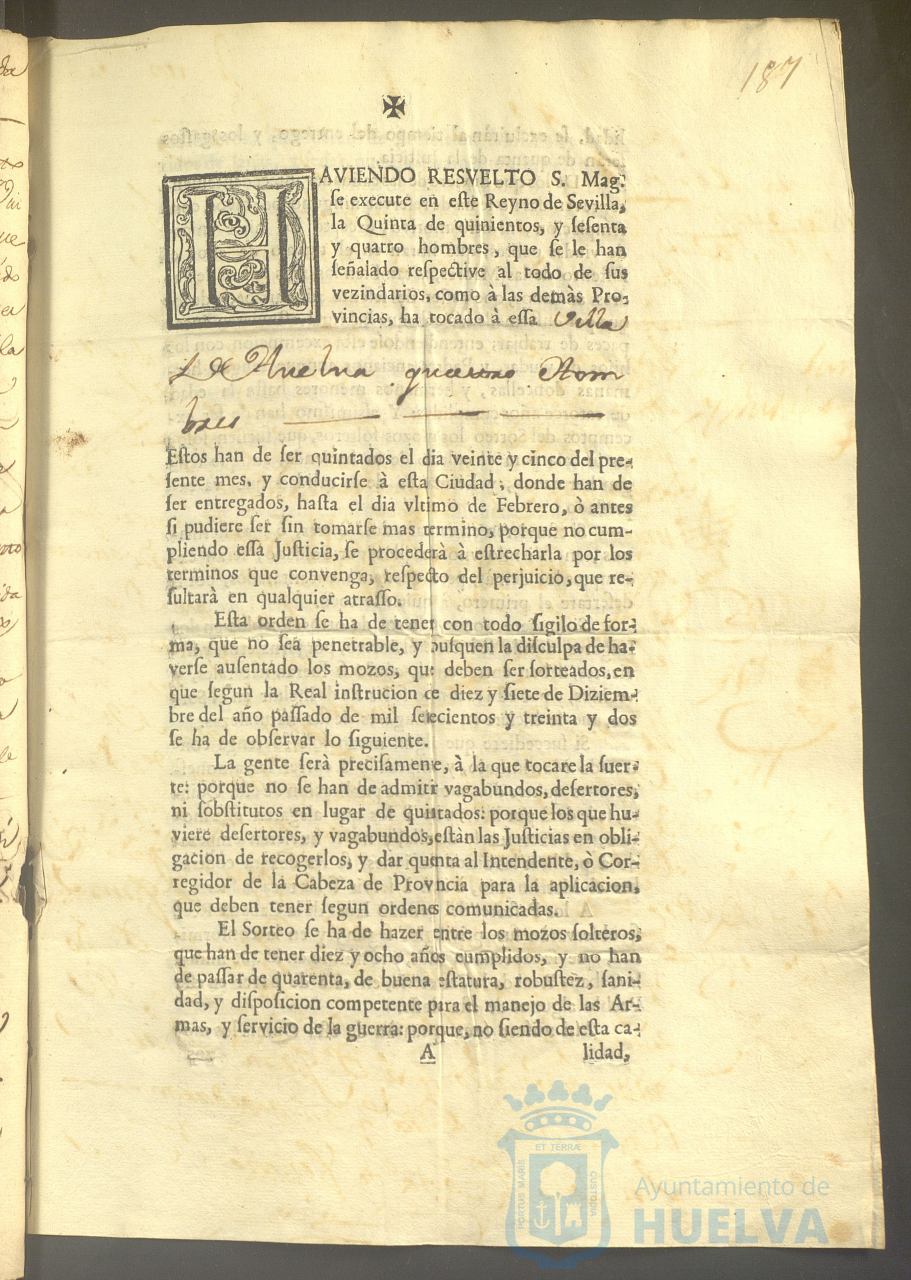 187
✠
HAVIENDO RESVELTO S. Mag.
ſe execute en eſte Reyno de Sevilla,
la Quinta de quinientos, y ſeſenta
y quatro hombres, que ſe le han
ſeñalado reſpective al todo de ſus
vezindarios, como à las demàs Pro-
vincias, ha tocado à eſſa Villa
De Huelva Hom
bres
Eſtos han de ſer quintados el dia veinte y cinco del pre-
ſente mes, y conducirſe à eſta Ciudad, donde han de
ſer entregados, haſta el dia vltimo de Febrero, ò antes
ſi pudiere ſer ſin tomarſe mas termino, porque no cum-
pliendo eſſa Juſticia, ſe procederà à eſtrecharla por los
terminos que convenga, reſpecto del perjuicio, que re-
ſultarà en qualquier atraſſo.
Eſta orden ſe ha de tener con todo ſigilo de for-
ma, que no ſea penetrable, y buſquen la diſculpa de ha-
verſe auſentado los mozos, que deben ſer ſorteados, en
que ſegun la Real inſtrucion de diez y ſiete de Diziem-
bre del año paſſado de mil ſetecientos y treinta y dos
ſe ha de obſervar lo ſiguiente.
La gente ſerà preciſamente, à la que tocare la ſuer-
te: porque no ſe han de admitir vagabundos, deſertores,
ni ſobſtitutos en lugar de quintados: porque los que hu-
viere deſertores, y vagabundos, eſtàn las Juſticias en obli-
gacion de recogerlos, y dar quenta al Intendente, ò Cor-
regidor de la Cabeza de Provncia para la aplicacion,
que deben tener ſegun ordenes comunicadas.
El Sorteo ſe ha de hazer entre los mozos ſolteros,
que han de tener diez y ocho años cumplidos, y no han
de paſſar de quarenta, de buena eſtatura, robuſtez, ſani-
dad, y diſpoſicion competente para el manejo de las Ar-
mas, y ſervicio de la guerra: porque, no ſiendo de eſta ca-
A lidad,
PORTUS MARIS ET TERRÆ CUSTODIA
Ayuntamiento de
HUELVA